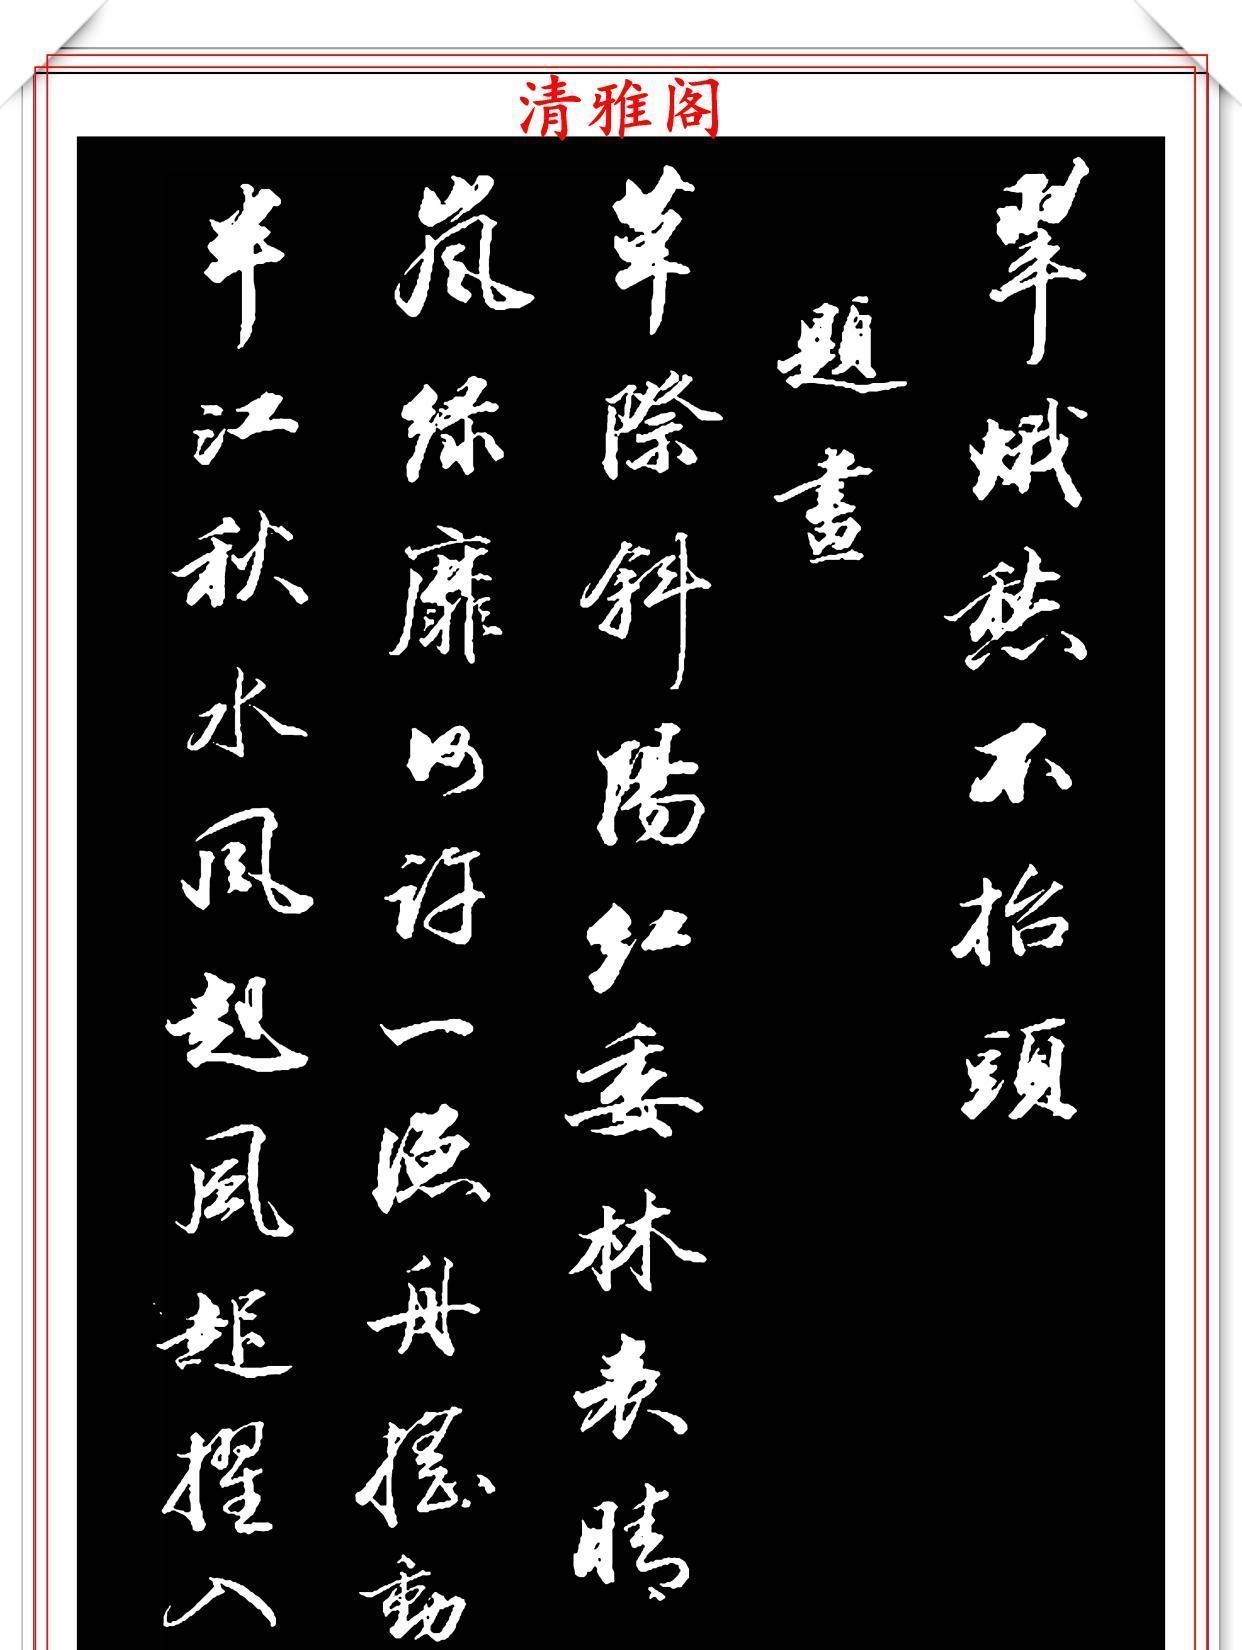 清雅阁
翠娥愁不抬頭
題畫
草際斜陽紅委林表晴
嵐綠靡何許一漁舟搖動
半江秋水風起風起擢入